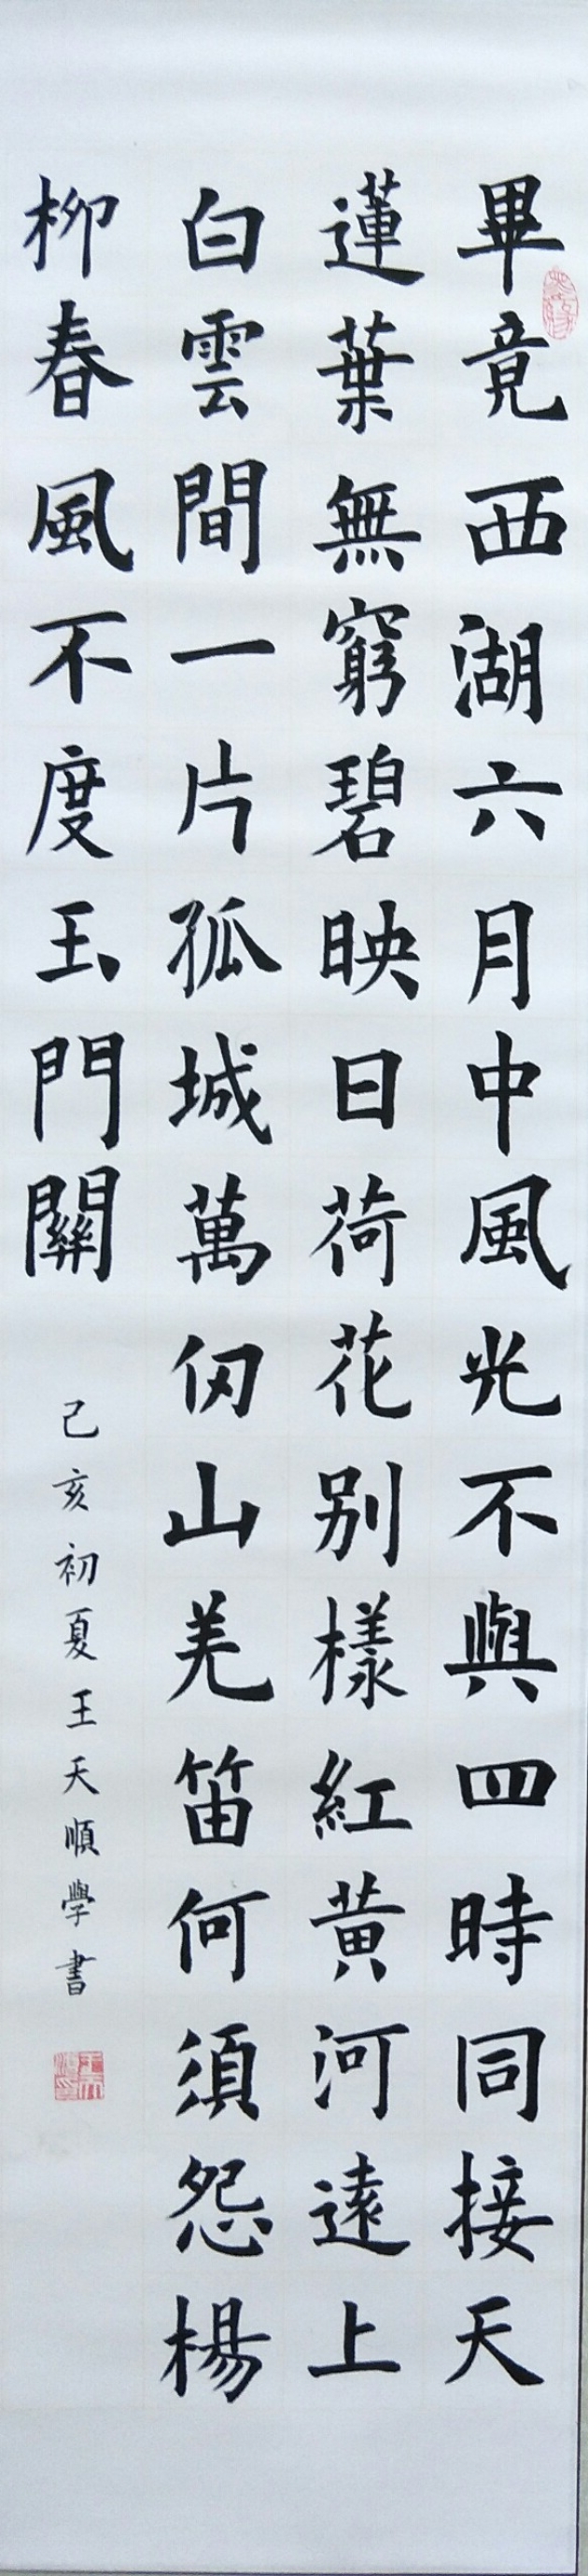 畢竟西湖六月中風光不與四時同接天
蓮葉無窮碧映日荷花别樣紅黄河遠上
白雲間一片孤城萬仞山羌笛何須怨楊
柳春風不度玉門關
己亥初夏王天順學書